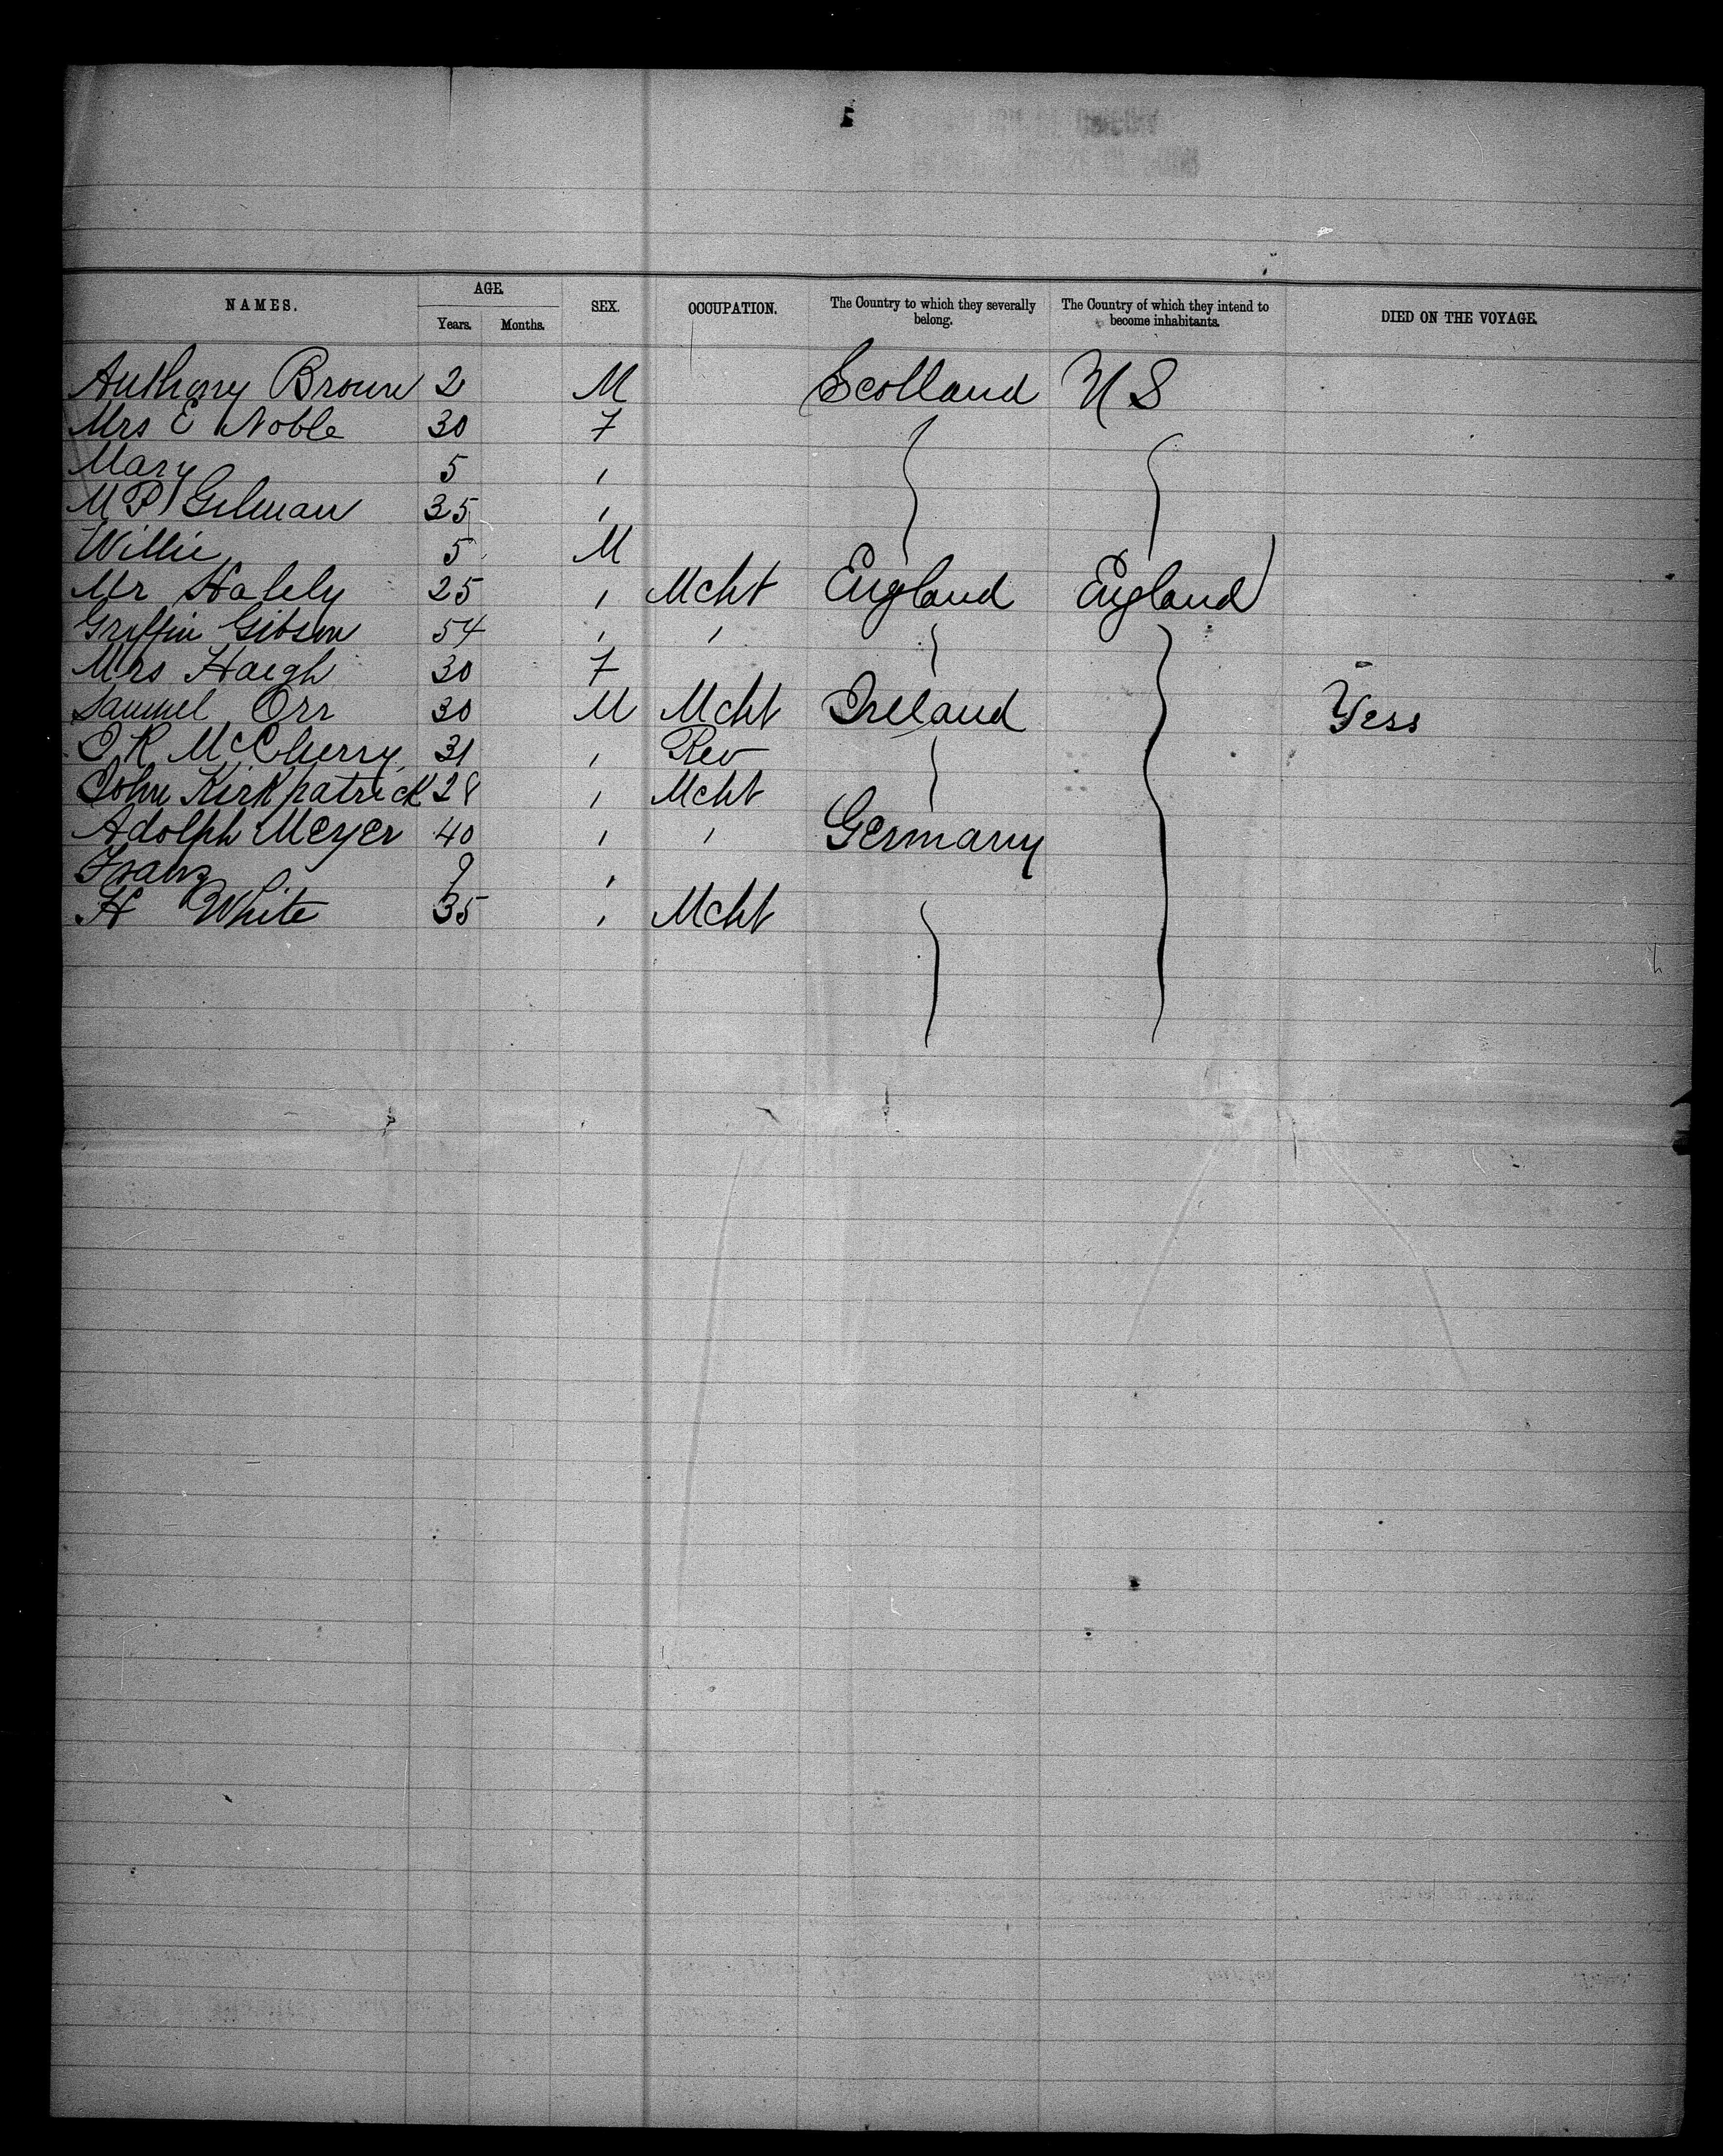 NAMES. AGE. SEX. OCCUPATION. The Country to which they severally belong. The Country of which they intend to become inhabitants. DIED ON THE VOYAGE.
Years. Months.
Anthony Brown 2 M Scotland U S
Mrs E Noble 30 F
Mary 5 "
M P Gilman 35 "
Willie 5 M
Mr 25 " Mcht England England
Griffin Gibson 54 " "
Mrs Haigh 30 F
Samuel Orr 30 M Mcht Ireland Yess
J R McCherry 31 " Rev
John Kirkpatrick 28 " Mcht
Adolph Meyer 40 " " Germany
Franz 9 "
H White 35 " Mcht